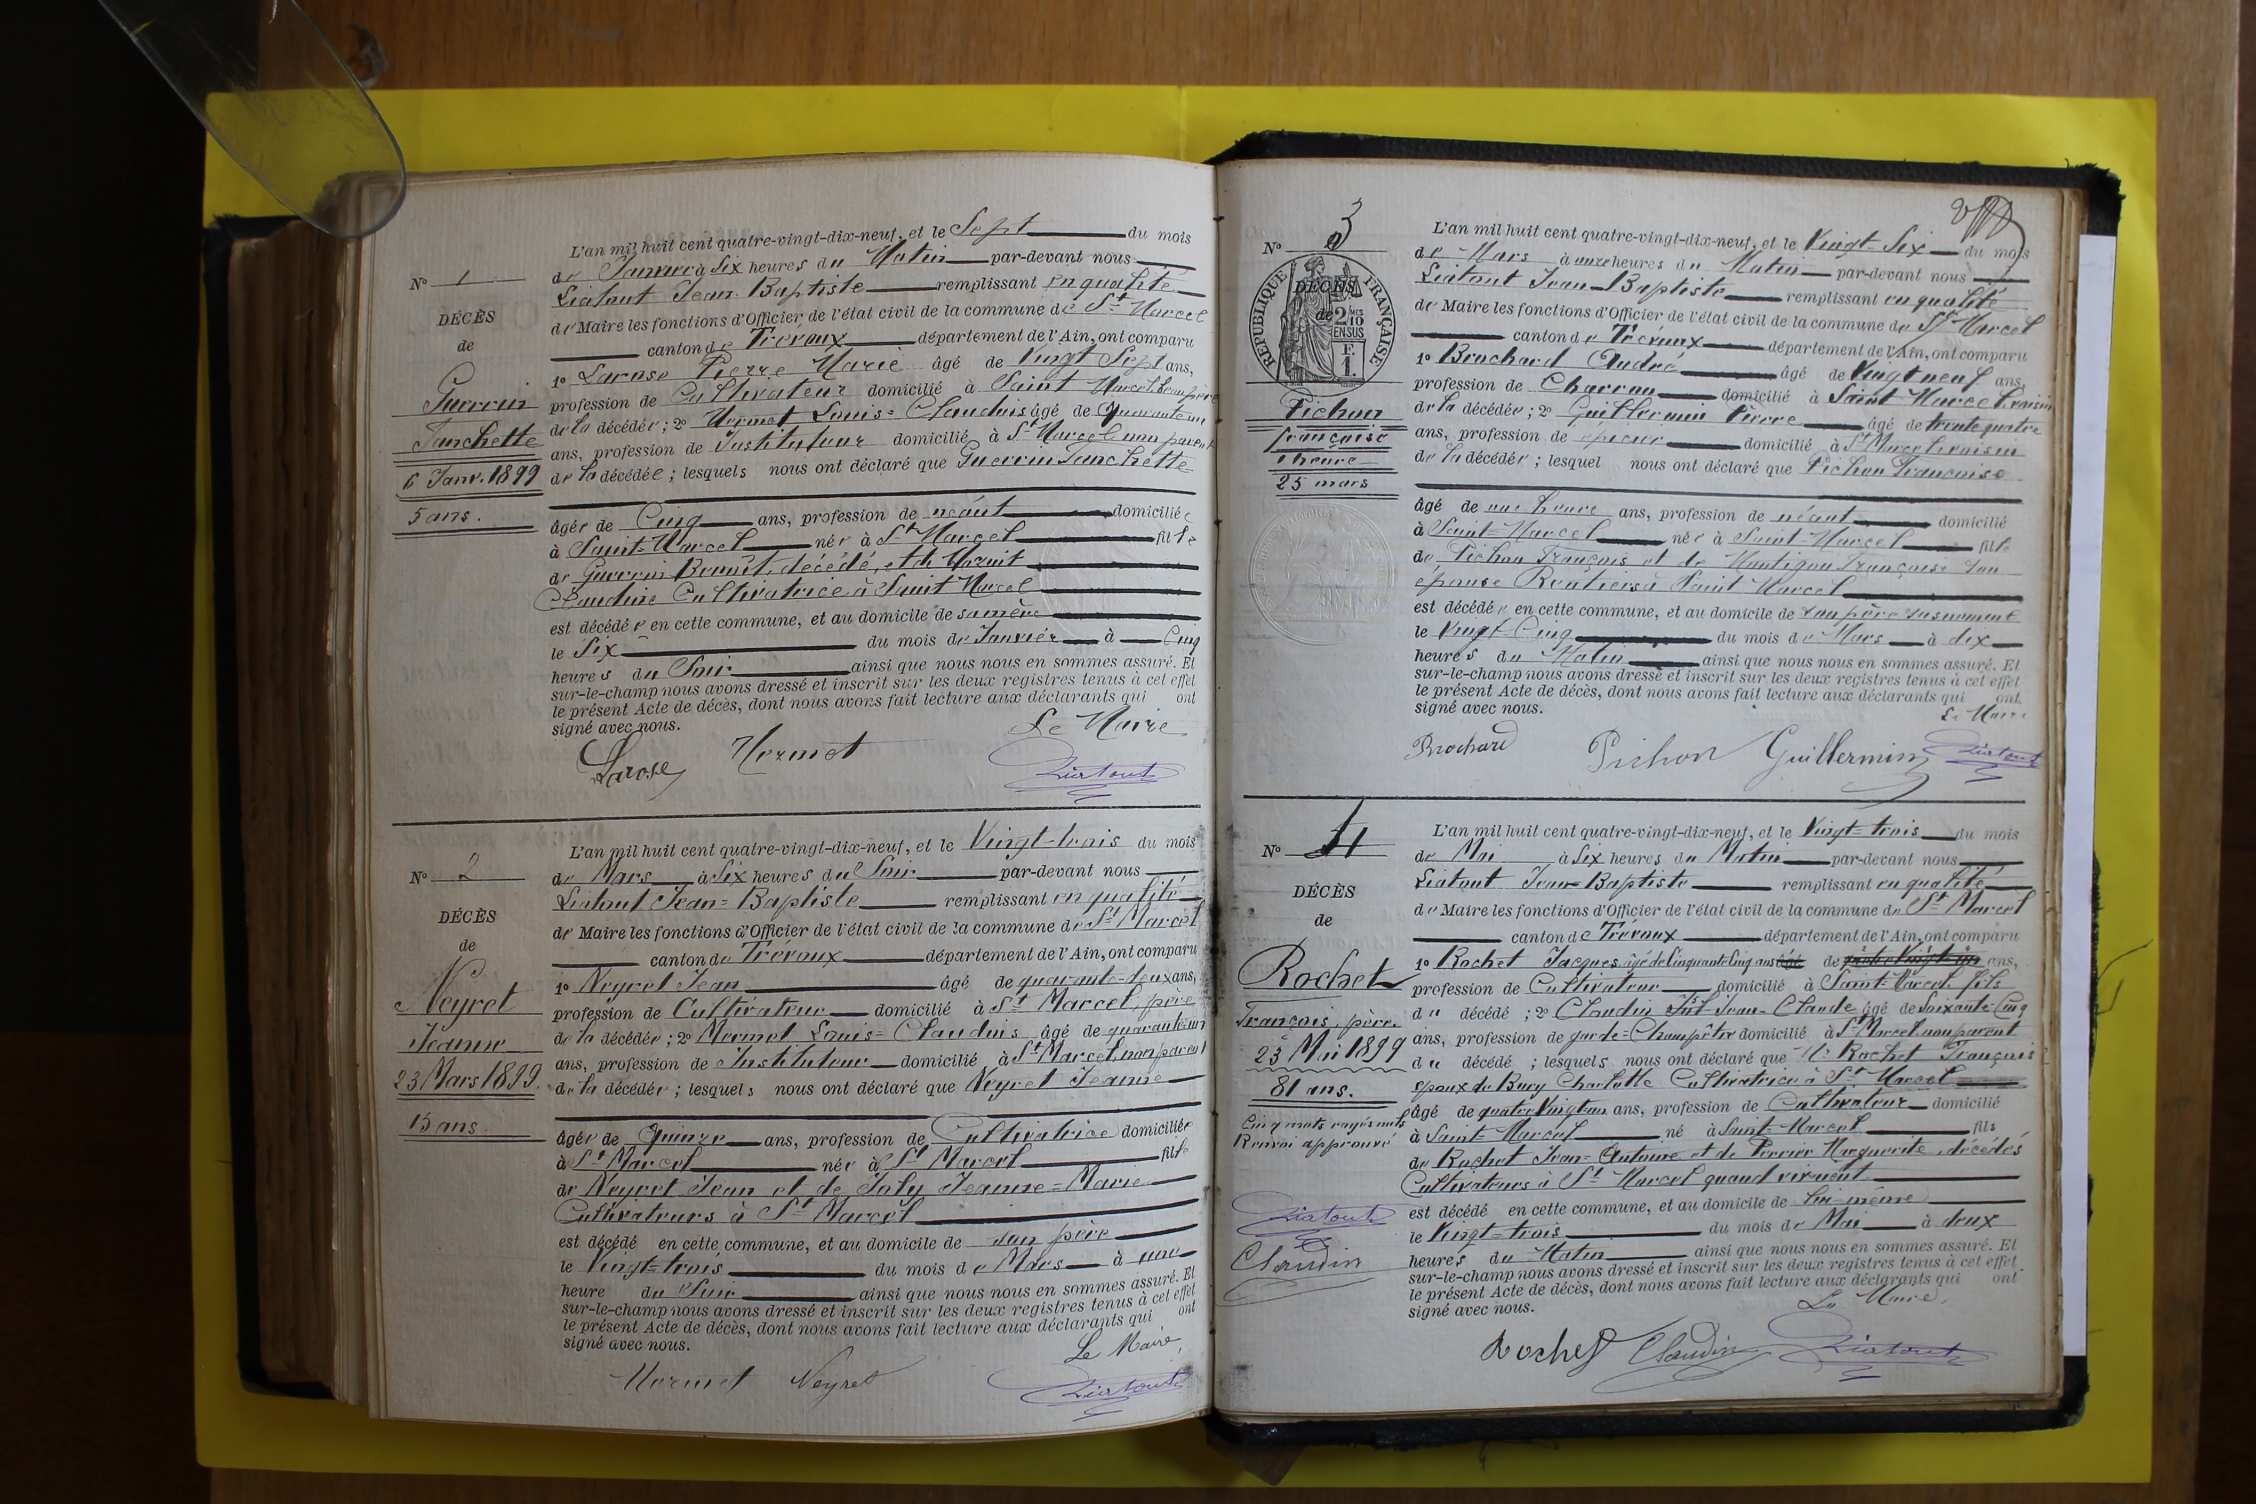 L'an mil huit cent quatre-vingt-dix-neuf, et le Sept du mois
de Janvier à Six heures du Matin par-devant nous
Liatout Jean Baptiste remplissant en qualité
de Maire les fonctions d'Officier de l'état civil de la commune de St Marcel
canton de Trévoux département de l'Ain, ont comparu
1o Larose Pierre Marie âgé de Vingt Sept ans,
profession de Cultivateur domicilié à Saint Marcel beau père
de la décédée; 2o Mermet Louis=Claudius âgé de Quarante un
ans, profession de Instituteur domicilié à St Marcel non parent
de la décédée; lesquels nous ont déclaré que Guerrin Fanchette
âgée de Cinq ans, profession de néant domiciliée
à Saint=Marcel née à St Marcel fille
de Guerrin Benoît, décédé, et de
Claudine Cultivatrice à Saint Marcel
est décédée en cette commune, et au domicile de sa mère
le Six du mois de Janvier à Cinq
heures du Soir ainsi que nous nous en sommes assuré. Et
sur-le-champ nous avons dressé et inscrit sur les deux registres tenus à cet effet
le présent Acte de décès, dont nous avons fait lecture aux déclarants qui ont
signé avec nous.
Le Maire
Larose Mermet Liatout
No 1
DÉCÈS
de
Guerrin
Fanchette
6 Janv. 1899
5 ans.
L'an mil huit cent quatre-vingt-dix-neuf, et le Vingt-trois du mois
de Mars à Six heures du Soir par-devant nous
Liatout Jean=Baptiste remplissant en qualité
de Maire les fonctions d'Officier de l'état civil de la commune de St Marcel
canton de Trévoux département de l'Ain, ont comparu
1o Neyret Jean âgé de quarante=deux ans,
profession de Cultivateur domicilié à St Marcel, père
de la décédée; 2o Mermet Louis=Claudius âgé de quarante-un
ans, profession de Instituteur domicilié à St Marcel, non parent
de la décédée; lesquels nous ont déclaré que Neyret Jeanne
âgée de Quinze ans, profession de Cultivatrice domiciliée
à St Marcel née à St Marcel fille
de Neyret Jean et de Joly Jeanne=Marie
Cultivateurs à St Marcel
est décédé en cette commune, et au domicile de son père
le Vingt=trois du mois de Mars à une
heure du Soir ainsi que nous nous en sommes assuré. Et
sur-le-champ nous avons dressé et inscrit sur les deux registres tenus à cet effet
le présent Acte de décès, dont nous avons fait lecture aux déclarants qui ont
signé avec nous.
Le Maire,
Mermet Neyret Liatout
No 2
DÉCÈS
de
Neyret
Jeanne
23 Mars 1899.
15 ans.
No 3
RÉPUBLIQUE FRANÇAISE
DÉCÈS
de
2 MES
10
EN SUS
F.
1.
Pichon
française
1 heure
25 mars
L'an mil huit cent quatre-vingt-dix-neuf, et le Vingt-Six du mois
de Mars à onze heures du Matin par-devant nous
Liatout Jean-Baptiste remplissant en qualité
de Maire les fonctions d'Officier de l'état civil de la commune de St Marcel
canton de Trévoux département de l'Ain, ont comparu
1o Brochard André âgé de Vingt neuf ans,
profession de Charron domicilié à Saint Marcel voisin
de la décédée; 2o Guillermin Pierre âgé de trente quatre
ans, profession de épicier domicilié à St Marcel voisin
de la décédée; lesquel nous ont déclaré que Pichon Françoise
âgé de une heure ans, profession de néant domicilié
à Saint-Marcel née à Saint Marcel fille
de Pichon François et de Montigon Françoise Son
épouse Rentiers à Saint Marcel
est décédée en cette commune, et au domicile de son père susnommé
le Vingt Cinq du mois de Mars à dix
heures du Matin ainsi que nous nous en sommes assuré. Et
sur-le-champ nous avons dressé et inscrit sur les deux registres tenus à cet effet
le présent Acte de décès, dont nous avons fait lecture aux déclarants qui ont
signé avec nous.
Le Maire
Brochard Pichon Guillermin Liatout
No 4
DÉCÈS
de
Rochet
François, père.
23 Mai 1899
81 ans.
Cinq mots rayés nuls
Renvoi approuvé
Liatout
Claudin
L'an mil huit cent quatre-vingt-dix-neuf, et le Vingt=trois du mois
de Mai à Six heures du Matin par-devant nous
Liatout Jean=Baptiste remplissant en qualité
de Maire les fonctions d'Officier de l'état civil de la commune de St Marcel
canton de Trévoux département de l'Ain, ont comparu
1o Rochet Jacques âgé de Cinquante Cinq ans âgé de quatre Vingt un ans,
profession de Cultivateur domicilié à Saint=Marcel fils
du décédé; 2o Claudin Jean=Claude âgé de Soixante Cinq
ans, profession de garde=Champêtre domicilié à St Marcel non parent
du décédé; lesquels nous ont déclaré que Rochet François
époux de Bury Charlotte Cultivatrice à St Marcel
âgé de quatre Vingt un ans, profession de Cultivateur domicilié
à Saint=Marcel né à Saint-Marcel fils
de Rochet Jean=Antoine et de Perrier Marguerite, décédés
Cultivateurs à St Marcel quand vivaient
est décédé en cette commune, et au domicile de lui-même
le Vingt=trois du mois de Mai à deux
heures du Matin ainsi que nous nous en sommes assuré. Et
sur-le-champ nous avons dressé et inscrit sur les deux registres tenus à cet effet
le présent Acte de décès, dont nous avons fait lecture aux déclarants qui ont
signé avec nous.
Le Maire,
Rochet Claudin Liatout